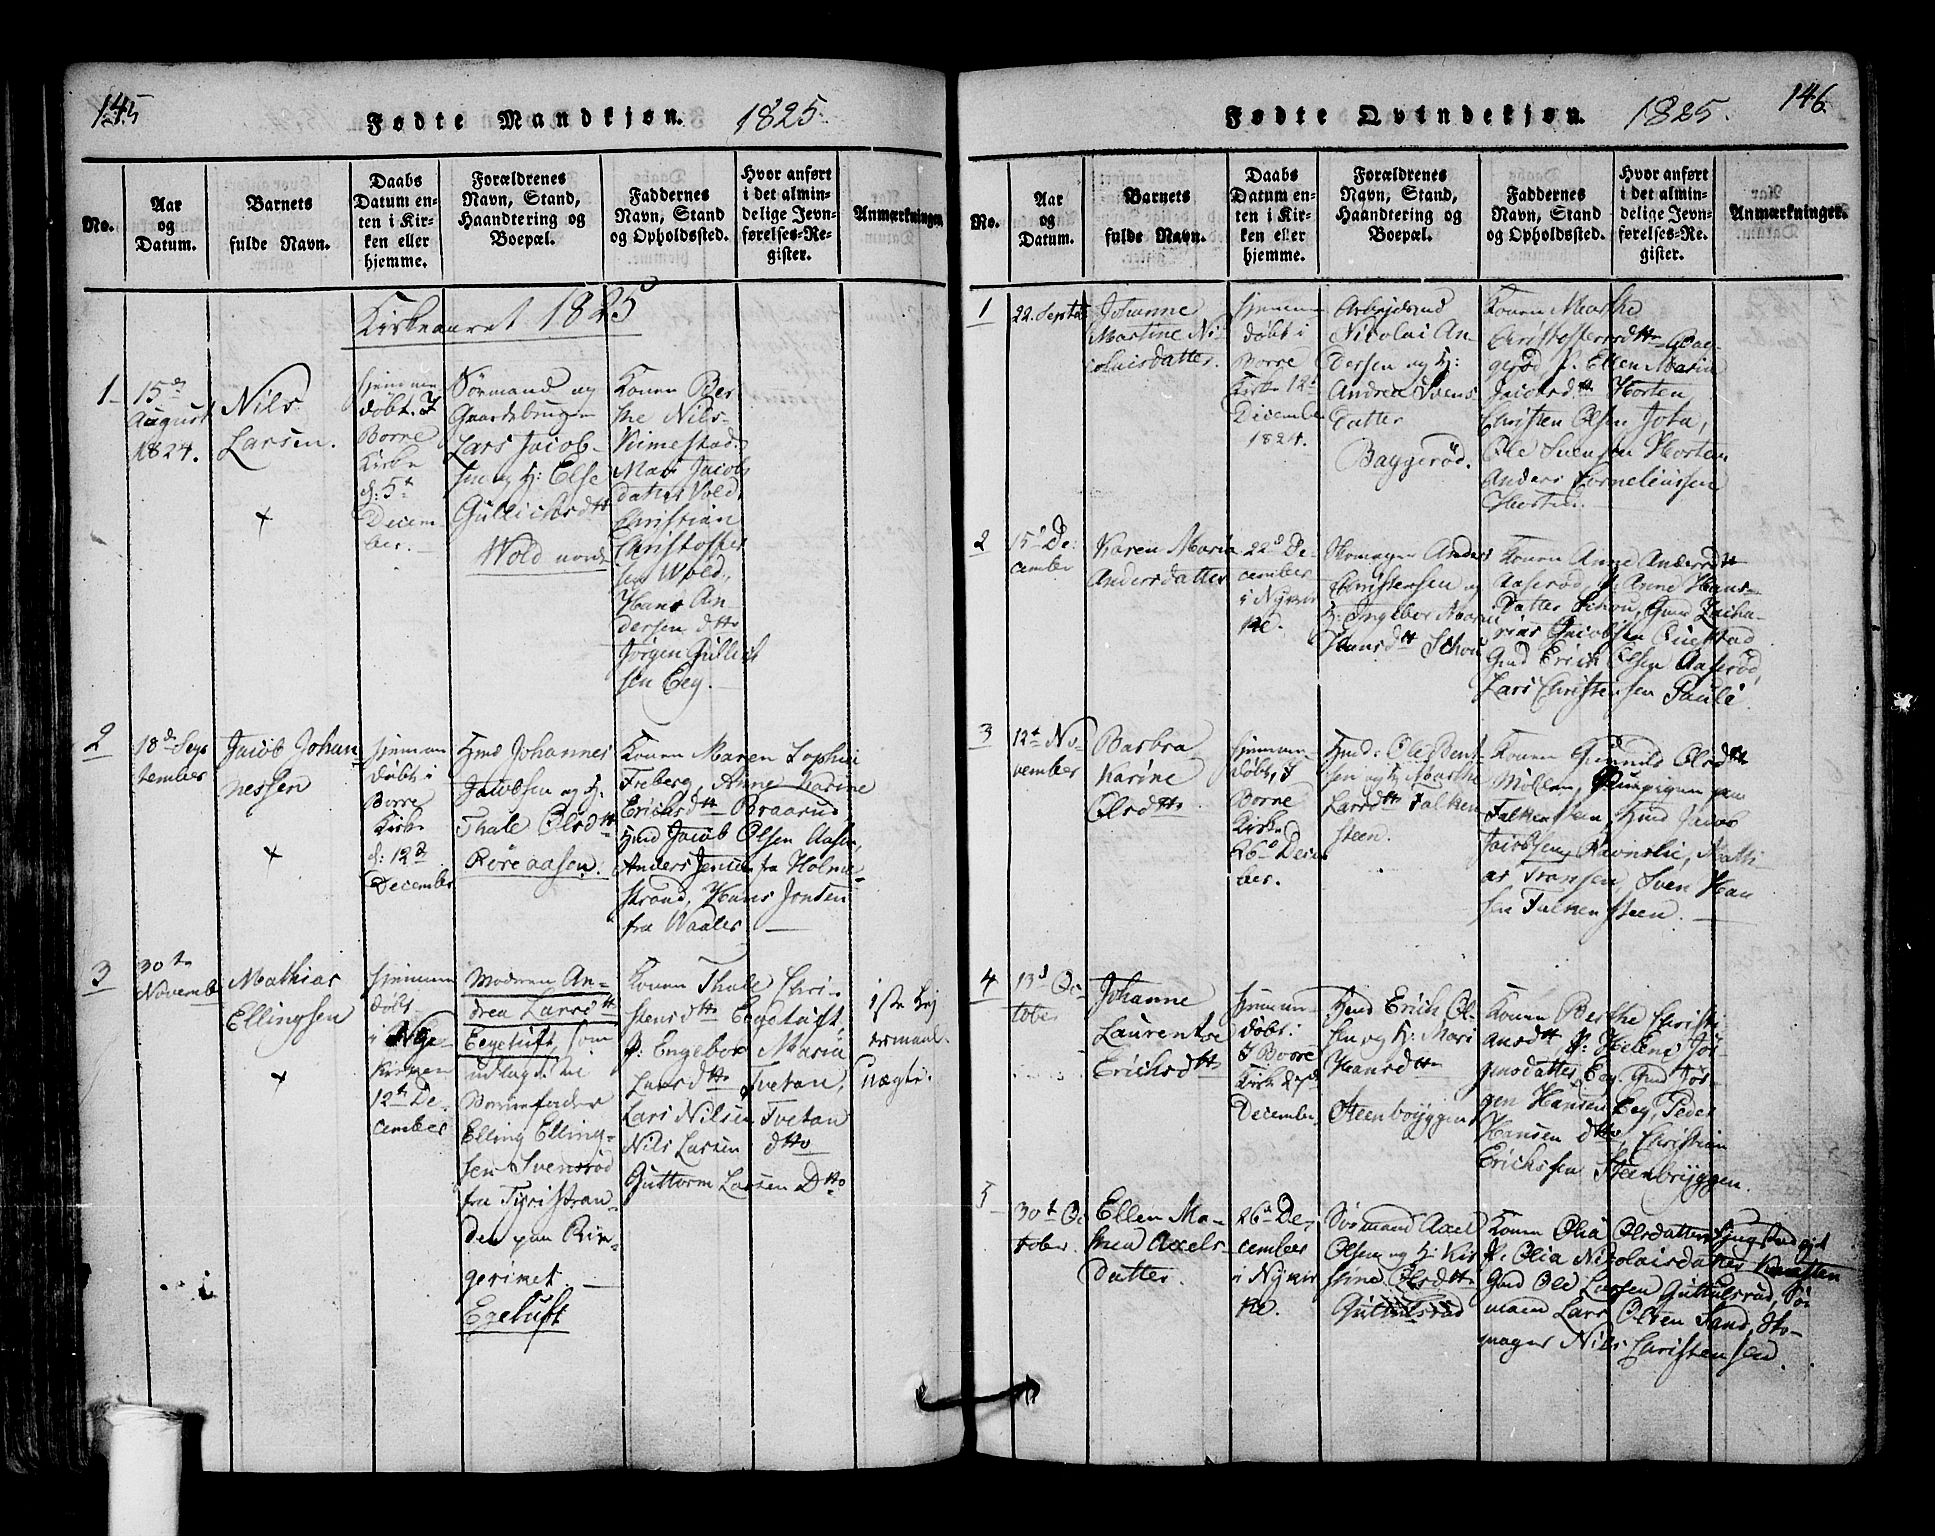 145
Fødte Mandkjøn. 1825.
No.
Aar
og
Datum.
Barnets
fulde Navn.
Daabs
Datum en-
ten i Kir-
ken eller
hjemme.
Forældrenes
Navn, Stand,
Haandtering og
Boepæl.
Faddernes
Navn, Stand
og Opholdssted.
Hvor anført
i det almin-
delige Jevn-
førelses-Re-
gister.
Anmærkninger
Kirkeaaret 1825
1
15de
August
1824.
Nils
Larsen.
hjemme
døbt. I
Borre
Kirke
d: 5te
Decem
ber.
Sørmand og
Gaardsbruger
Lars Jacob-
sen og H: Else
Gullichsdtt
Wold nordr
Konen Ber
the Nils-
Mari Jacobs
datter Vold,
Christian
Christoffer
sen Wold,
Hans An-
dersen dtto
Jørgen Gullich
sen Eeg.
2
18de Sep
tember
Jacob Johan
nessen
hjemme
døbt i
Borre
Kirke
d: 12te
December
Hmd Johannes
Jacobsen og H:
Thale Olsdtt
Røreaasen.
Konen Maren Sophia
Freberg, Anne Karine
Erichsdtt Braarud
Hmd Jacob Olsen Aasen,
Anders Jensen fra Holme-
strand, Hans Jonsen
fra Waaler
3
30te
Novemb
Mathias
Ellingsen
hjemme
døbt
i Nye
Kirken
12te De-
cember
Moderen An-
drea Larsdtt
Eegeluft, som
udlagde til
Barnefader
Elling Elling-
sen Svensrød
fra Tyristran-
den paa Rin-
gerimet.
Egeluft
Konen Thale Chri-
stensdtt Eegeluft,
P: Engebor Maria
Larsdtt Tvetan,
Lars Nilsen Tvetan
Nils Larsen dtto
Guttorm Larsen Dtto
1ste Lej
ermaal
nægt.
146
Fødte Qvindekjøn. 1825.
No.
Aar
og
Datum.
Barnets
fulde Navn.
Daabs
Datum en-
ten i Kir-
ken eller
hjemme.
Forældrenes
Navn, Stand,
Haandtering og
Boepæl.
Faddernes
Navn, Stand
og Opholdssted.
Hvor anført
i det almin-
delige Jevn-
førelses-Re-
gister.
Anmærkninger.
1
22. Septb
Johanne
Martine Ni
colaisdatter.
hjemme
døbt i
Borre
Kirke 12te
December
1824.
Arbejdsmd
Nicolai An
dersen og H:
Andrea Svens
datter
Baggerød.
Konen Marthe
Christoffersdtt Bag-
gerød, P. Ellen Maria
Jacobsdtt Horten,
Christen Olsen
Ole Svensen Horten
Anders Corneliussen
Horten.
2
15de De-
cember
Karen Maria
Andersdatter
22de De-
cember
i Nykir
ke.
Skomager Anders
Christensen og
H: Ingeber Maria
Hansdtt Schou
Konen Anne Andersdtt
Aaserød, P: Anne Hans-
datter Schou, Gmd Zacha-
rias Jacobsen
Gmd Erich Olsen Aaserød,
Lars Christensen Pauli
3
12te No-
vember
Barbra
Karine
Olsdtt
hjemme
døbt, I
Borre
Kirke
26de Decem
ber.
Hmd: Ole Bent
sen og H: Marthe
Larsdtt Falken
steen.
Konen Gunnild Olsdtt
Møllen, Tjenpigen paa
Falkensteen, Hmd Jacob
Jacobsen Ravnsli, Mathi
as Fransen, Sven Han
sen Falkensteen.
4
13de Oc-
tober
Johanne
Laurentse
Erichsdtt
hjemme
døbt:
I Borre
Kirke 27de
December
Hmd Erich Ol-
sen og H: Mari
Hansdtt
Steenbryggen
Konen Berthe Christi
ansdtt P: Helene Jør-
gensdatter Eeg. Gmd Jør-
gen Hansen Eeg, Peder
Hansen dtto, Christian
Erichssen Steenbryggen.
5
30te Oc
tober.
Ellen Ma-
thea Axels-
datter.
26de De-
cember
i Nykir
ke.
Sørmand Axel
Olsen og H: Kir
stine Olsdtt
Guttulsrud
Konen Olia Olsdatter
P. Olia Nicolaisdatter
Gmd Ole Larsen Guttulsrud, Sø
mand Lars Olsen Sand, Sko-
mager Nils Christensen.